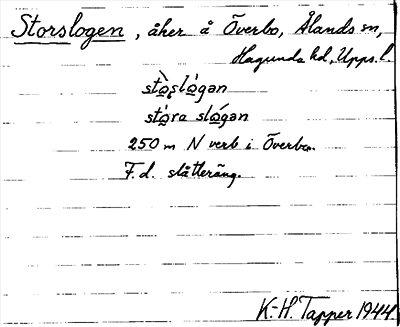 Storslogen, åker å Överbo, Ålands sn,
Hagunda hd, Upps. l.
stòslógan
stóra slógan
250 m N verb i Överbo.
F. d. slåtteräng.
K.-H. Tapper 1944.